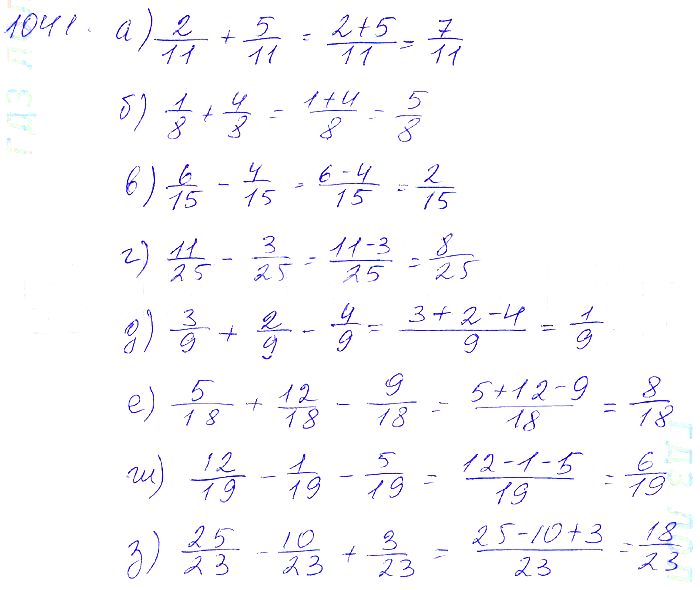 1041. а) 2/11 + 5/11 = 2+5/11 = 7/11
б) 1/8 + 4/8 = 1+4/8 = 5/8
в) 6/15 - 4/15 = 6-4/15 = 2/15
г) 11/25 - 3/25 = 11-3/25 = 8/25
д) 3/9 + 2/9 - 4/9 = 3+2-4/9 = 1/9
е) 5/18 + 12/18 - 9/18 = 5+12-9/18 = 8/18
ж) 12/19 - 1/19 - 5/19 = 12-1-5/19 = 6/19
з) 25/23 - 10/23 + 3/23 = 25-10+3/23 = 18/23